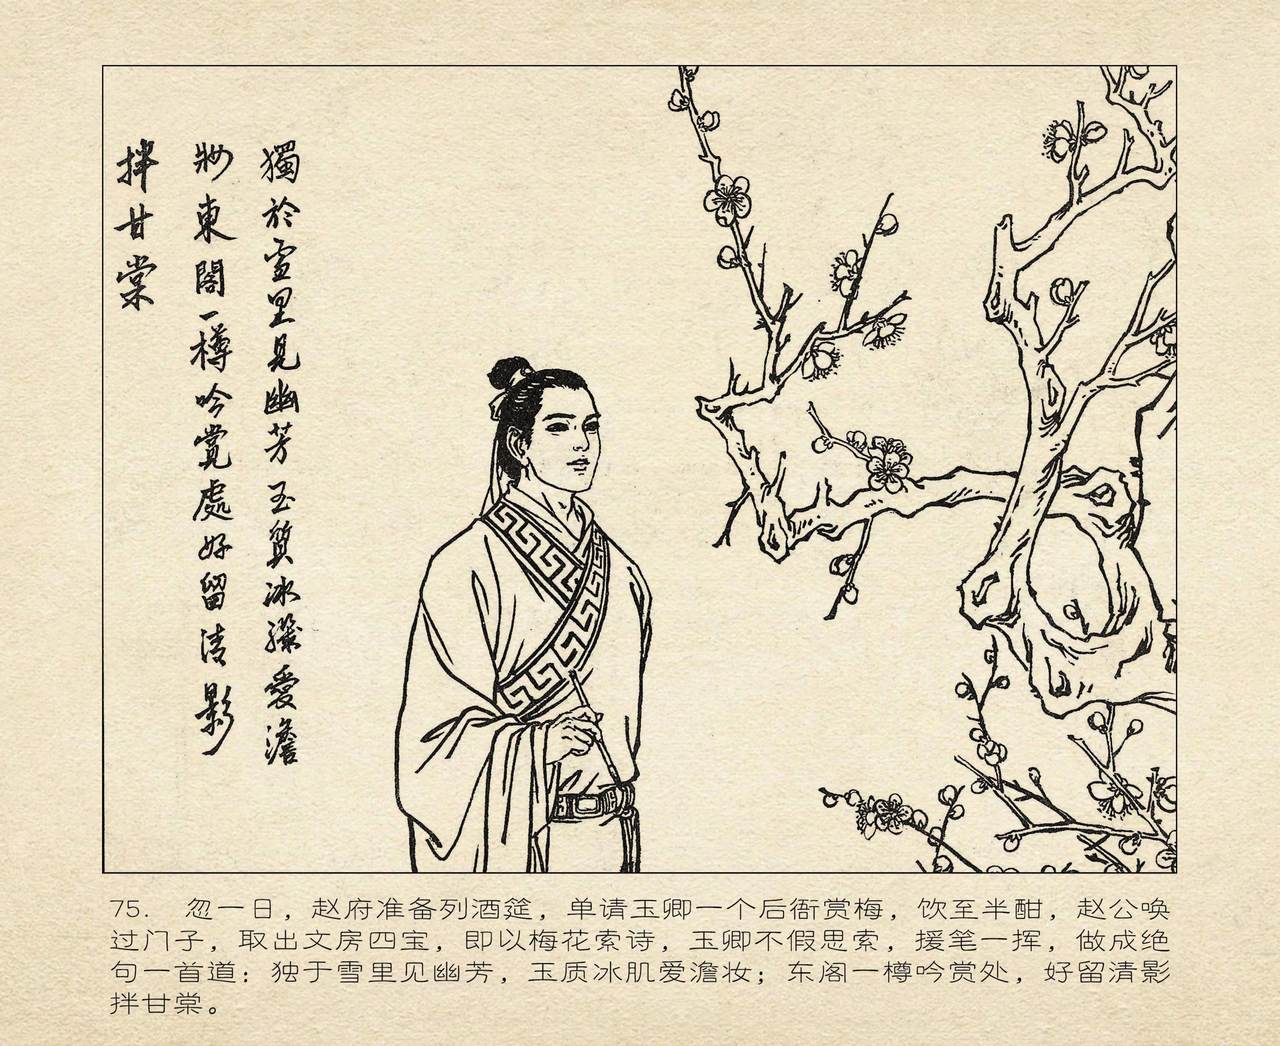 獨於雪里見幽芳玉質冰肌愛澹
妝東閣一樽吟賞處好留清影
拌甘棠
75. 忽一日，赵府准备列酒筵，单请玉卿一个后衙赏梅，饮至半酣，赵公唤
过门子，取出文房四宝，即以梅花索诗，玉卿不假思索，援笔一挥，做成绝
句一首道：独于雪里见幽芳，玉质冰肌爱澹妆；东阁一樽吟赏处，好留清影
拌甘棠。